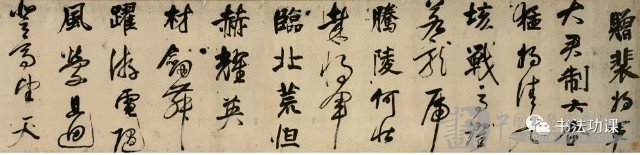 贈裴将军
大君制六合
猛将清九
垓戰馬
若龍虎
騰陵何壮
哉将軍
臨北荒烜
赫耀英
材劒舞
躍游電随
風縈且迴
登高望天
书法功课